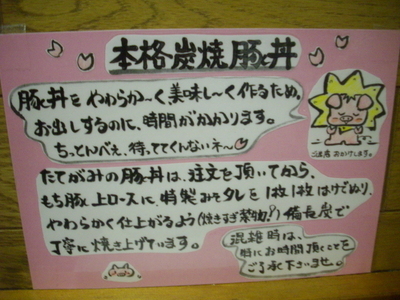 本格炭焼豚丼
豚丼をやわらか〜く美味し〜く作るため、
お出しするのに、時間がかかります。
ちっとんべぇ、待っててくんないネ〜
ご迷惑おかけします。
たてがみの豚丼は、注文を頂いてから、
もち豚上ロースに、特製みそタレを1枚1枚はけでぬり、
やわらかく仕上がるよう(焼きすぎ禁物!)備長炭で
丁寧に焼き上げています。
混雑時は、
特にお時間頂くことを
ご了承下さいませ。